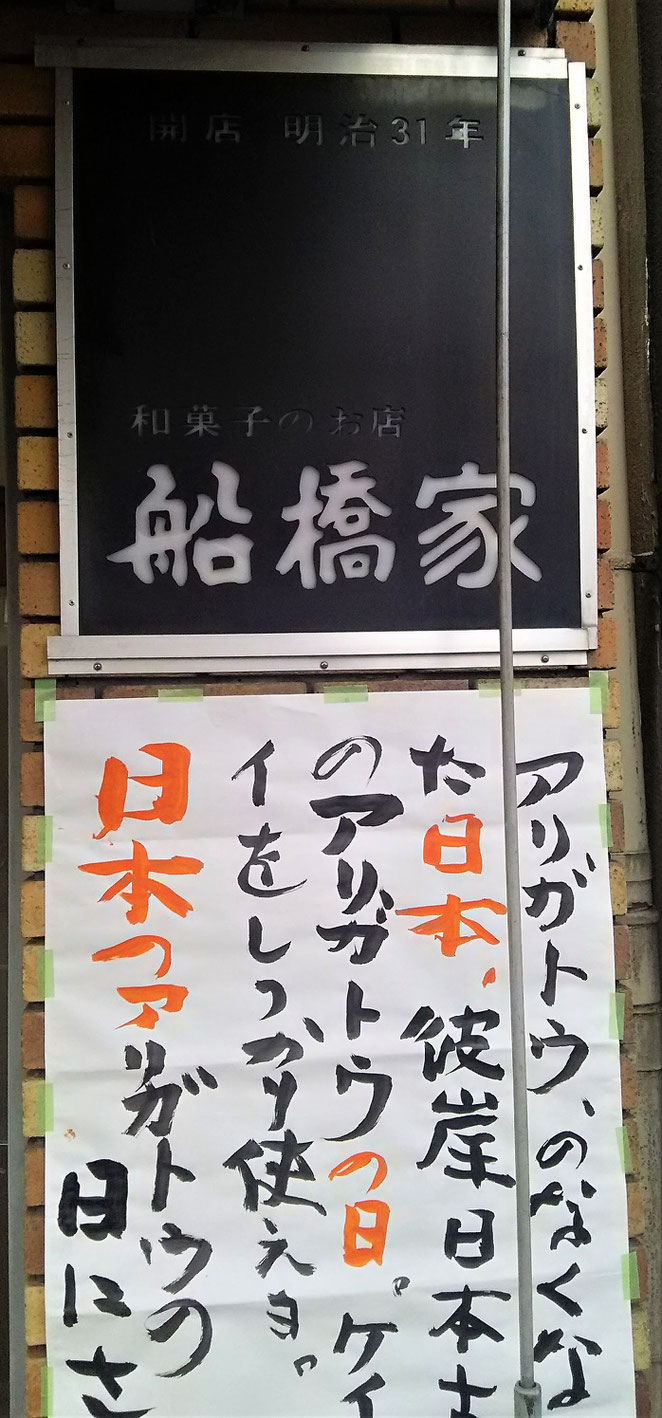 開店 明治31年
和菓子のお店
船橋家
アリガトウ、のなくな
た日本、彼岸日本古
のアリガトウの日。ケイ
イをしっかり使えョ。
日本のアリガトウの
日にさ